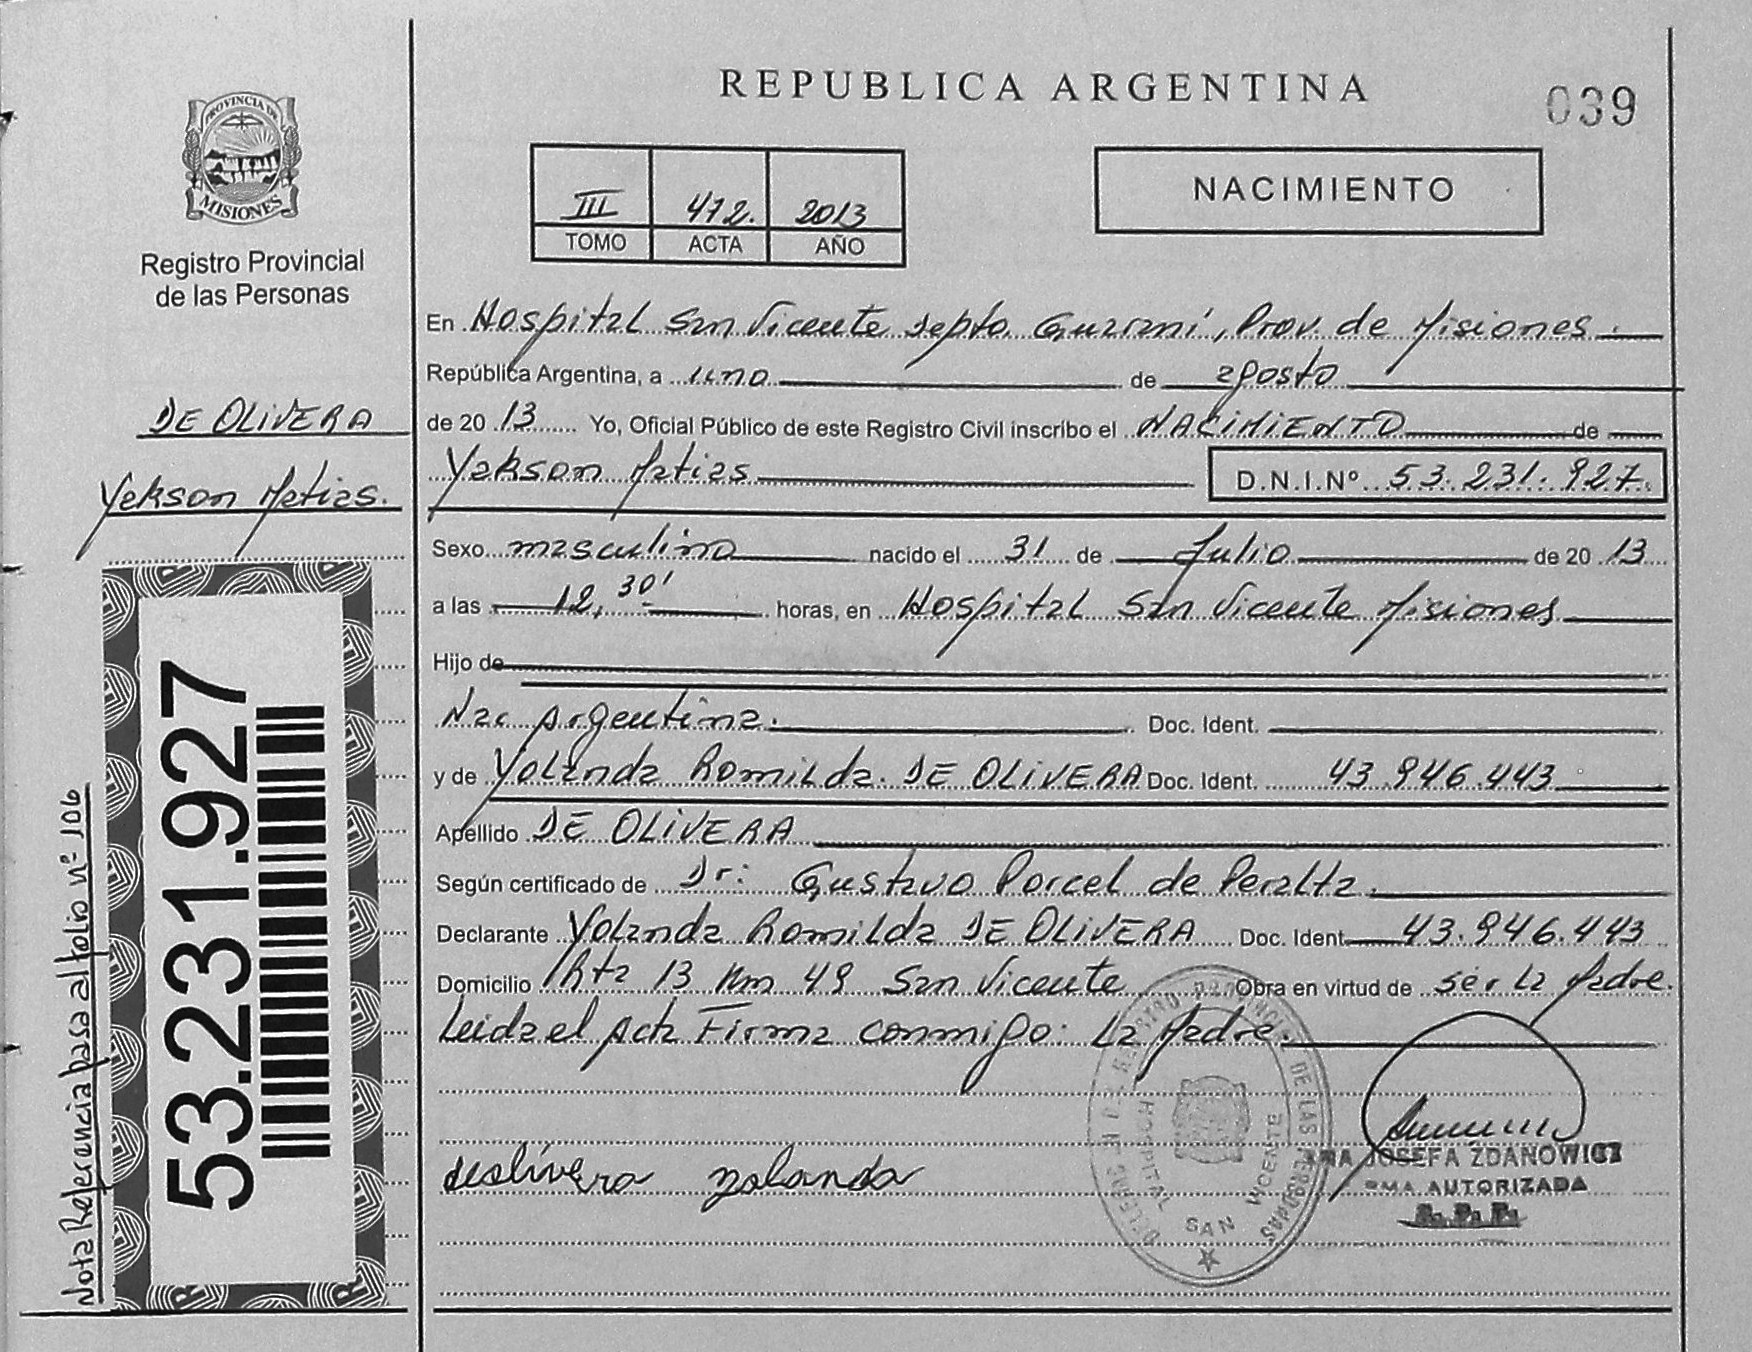 REPUBLICA ARGENTINA
039
PROVINCIA DE
MISIONES
Registro Provincial
de las Personas
III 412. 2013
TOMO ACTA AÑO
NACIMIENTO
DE OLIVERA
Yekson Matias.
53.231.927
Nota Referencia pasa al folio nº 106
En Hospital San Vicente Depto. Guarani, Prov. de Misiones.
República Argentina, a uno de agosto
de 2013 Yo, Oficial Público de este Registro Civil inscribo el NACIMIENTO de
Yekson Matias D.N.I.Nº 53.231.927.
Sexo masculino nacido el 31 de Julio de 2013
a las 12,30' horas, en Hospital San Vicente Misiones
Hijo de
Nac Argentina. Doc. Ident.
y de Yolanda Romilda DE OLIVERA Doc. Ident. 43.946.443
Apellido DE OLIVERA
Según certificado de Dr: Gustavo Porcel de Peralta.
Declarante Yolanda Romilda DE OLIVERA Doc. Ident 43.946.443
Domicilio Rta 13 Km 49 San Vicente Obra en virtud de ser la Madre.
Leida el Acta Firma conmigo: La Madre.
deolivera yolanda
HOSPITAL SAN VICENTE
JOSEFA ZDANOWICZ
AUTORIZADA